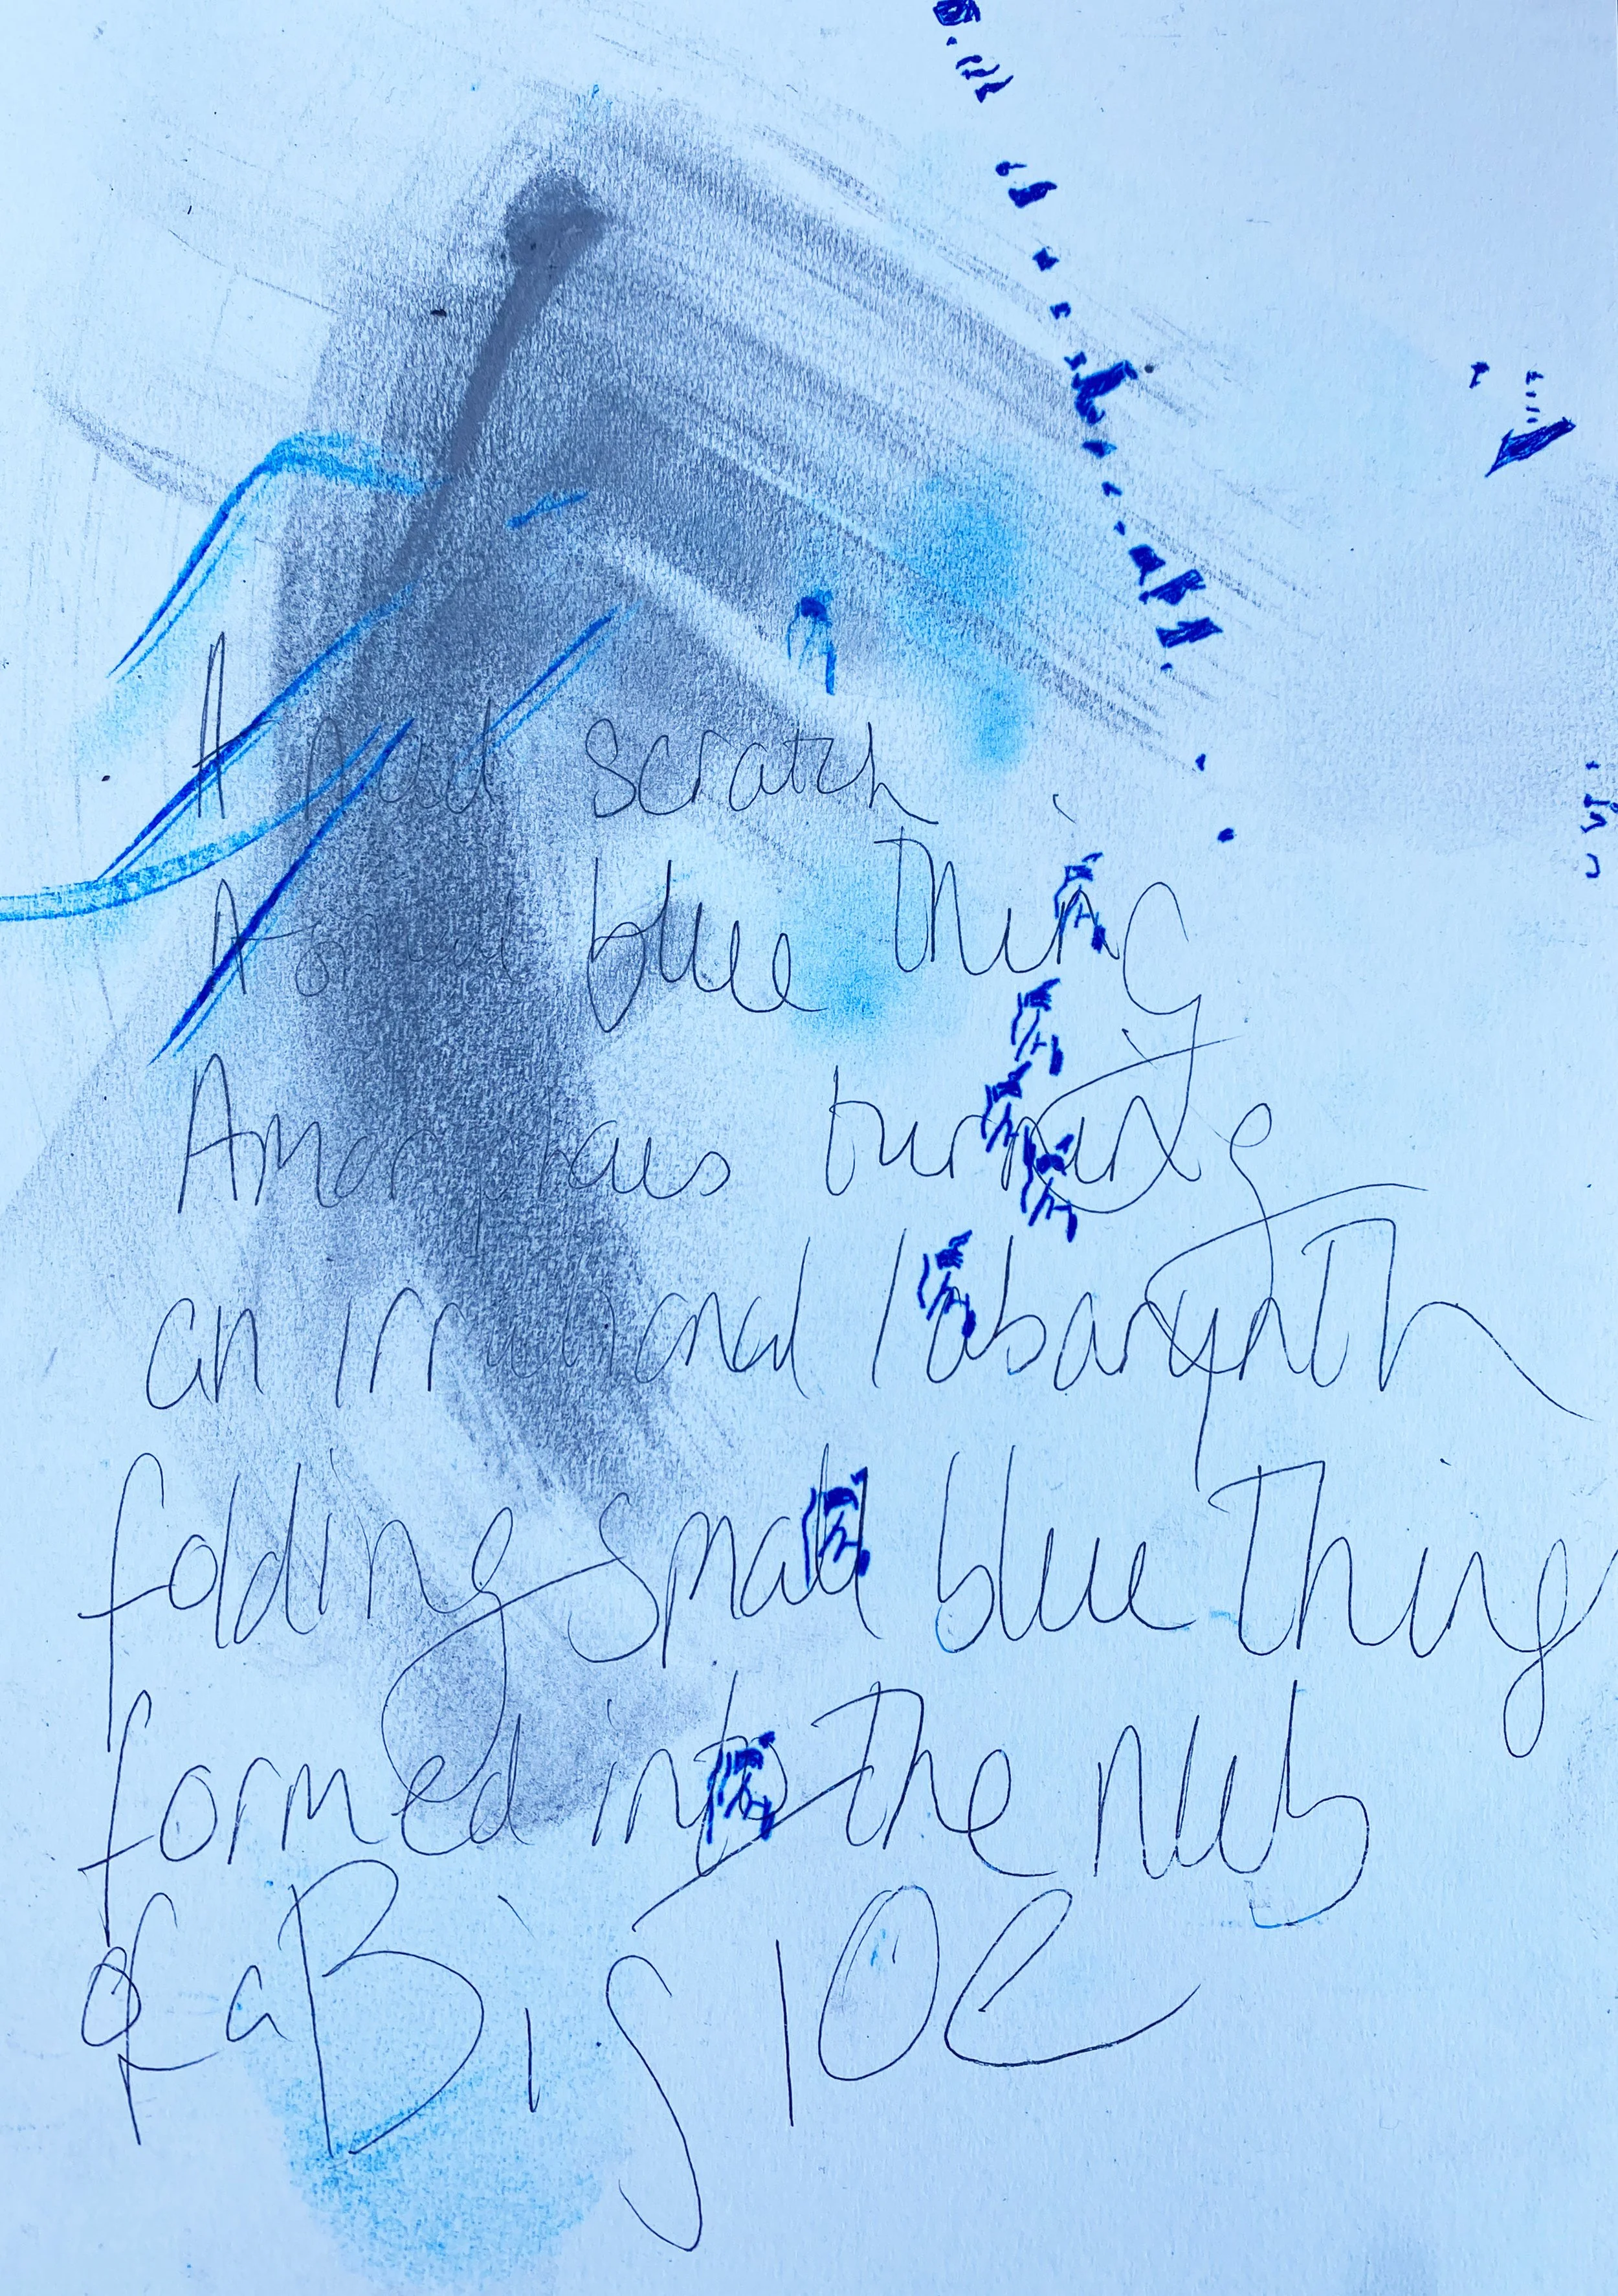 A scratch
A blue thing
Amorphous turning
an irrational labarynth
folding small blue thing
formed into the nub
of a Big